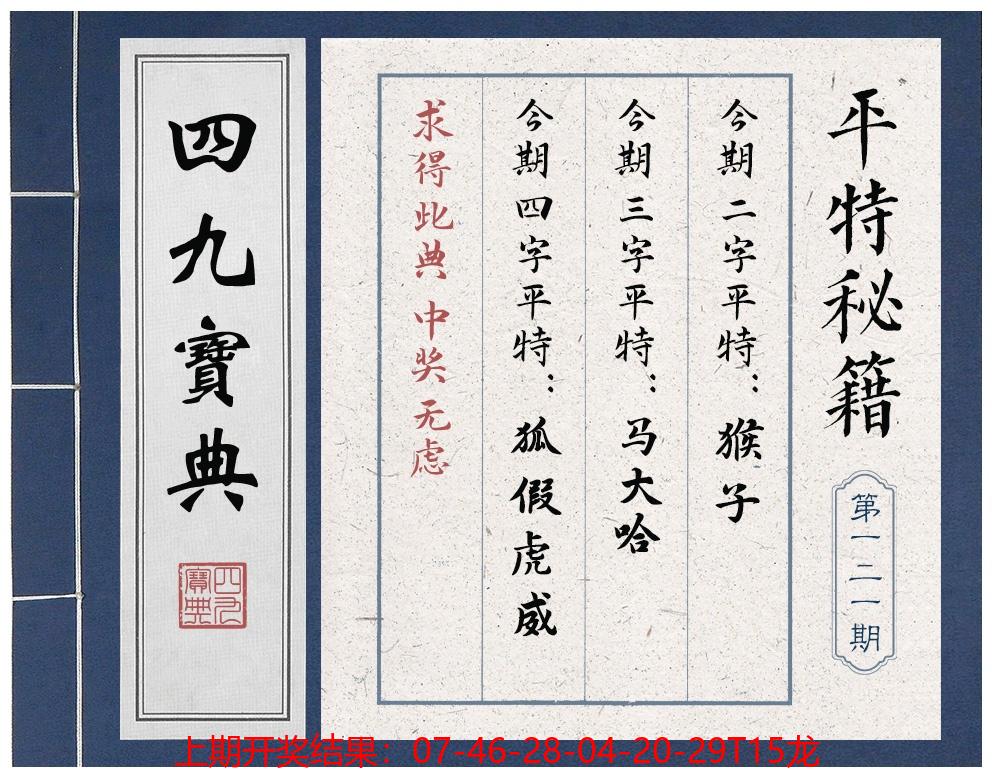 平特秘籍
第一二一期
今期二字平特：猴子
今期三字平特：马大哈
今期四字平特：狐假虎威
求得此典 中奖无虑
四九寶典
四九寶典
上期开奖结果：07-46-28-04-20-29T15龙